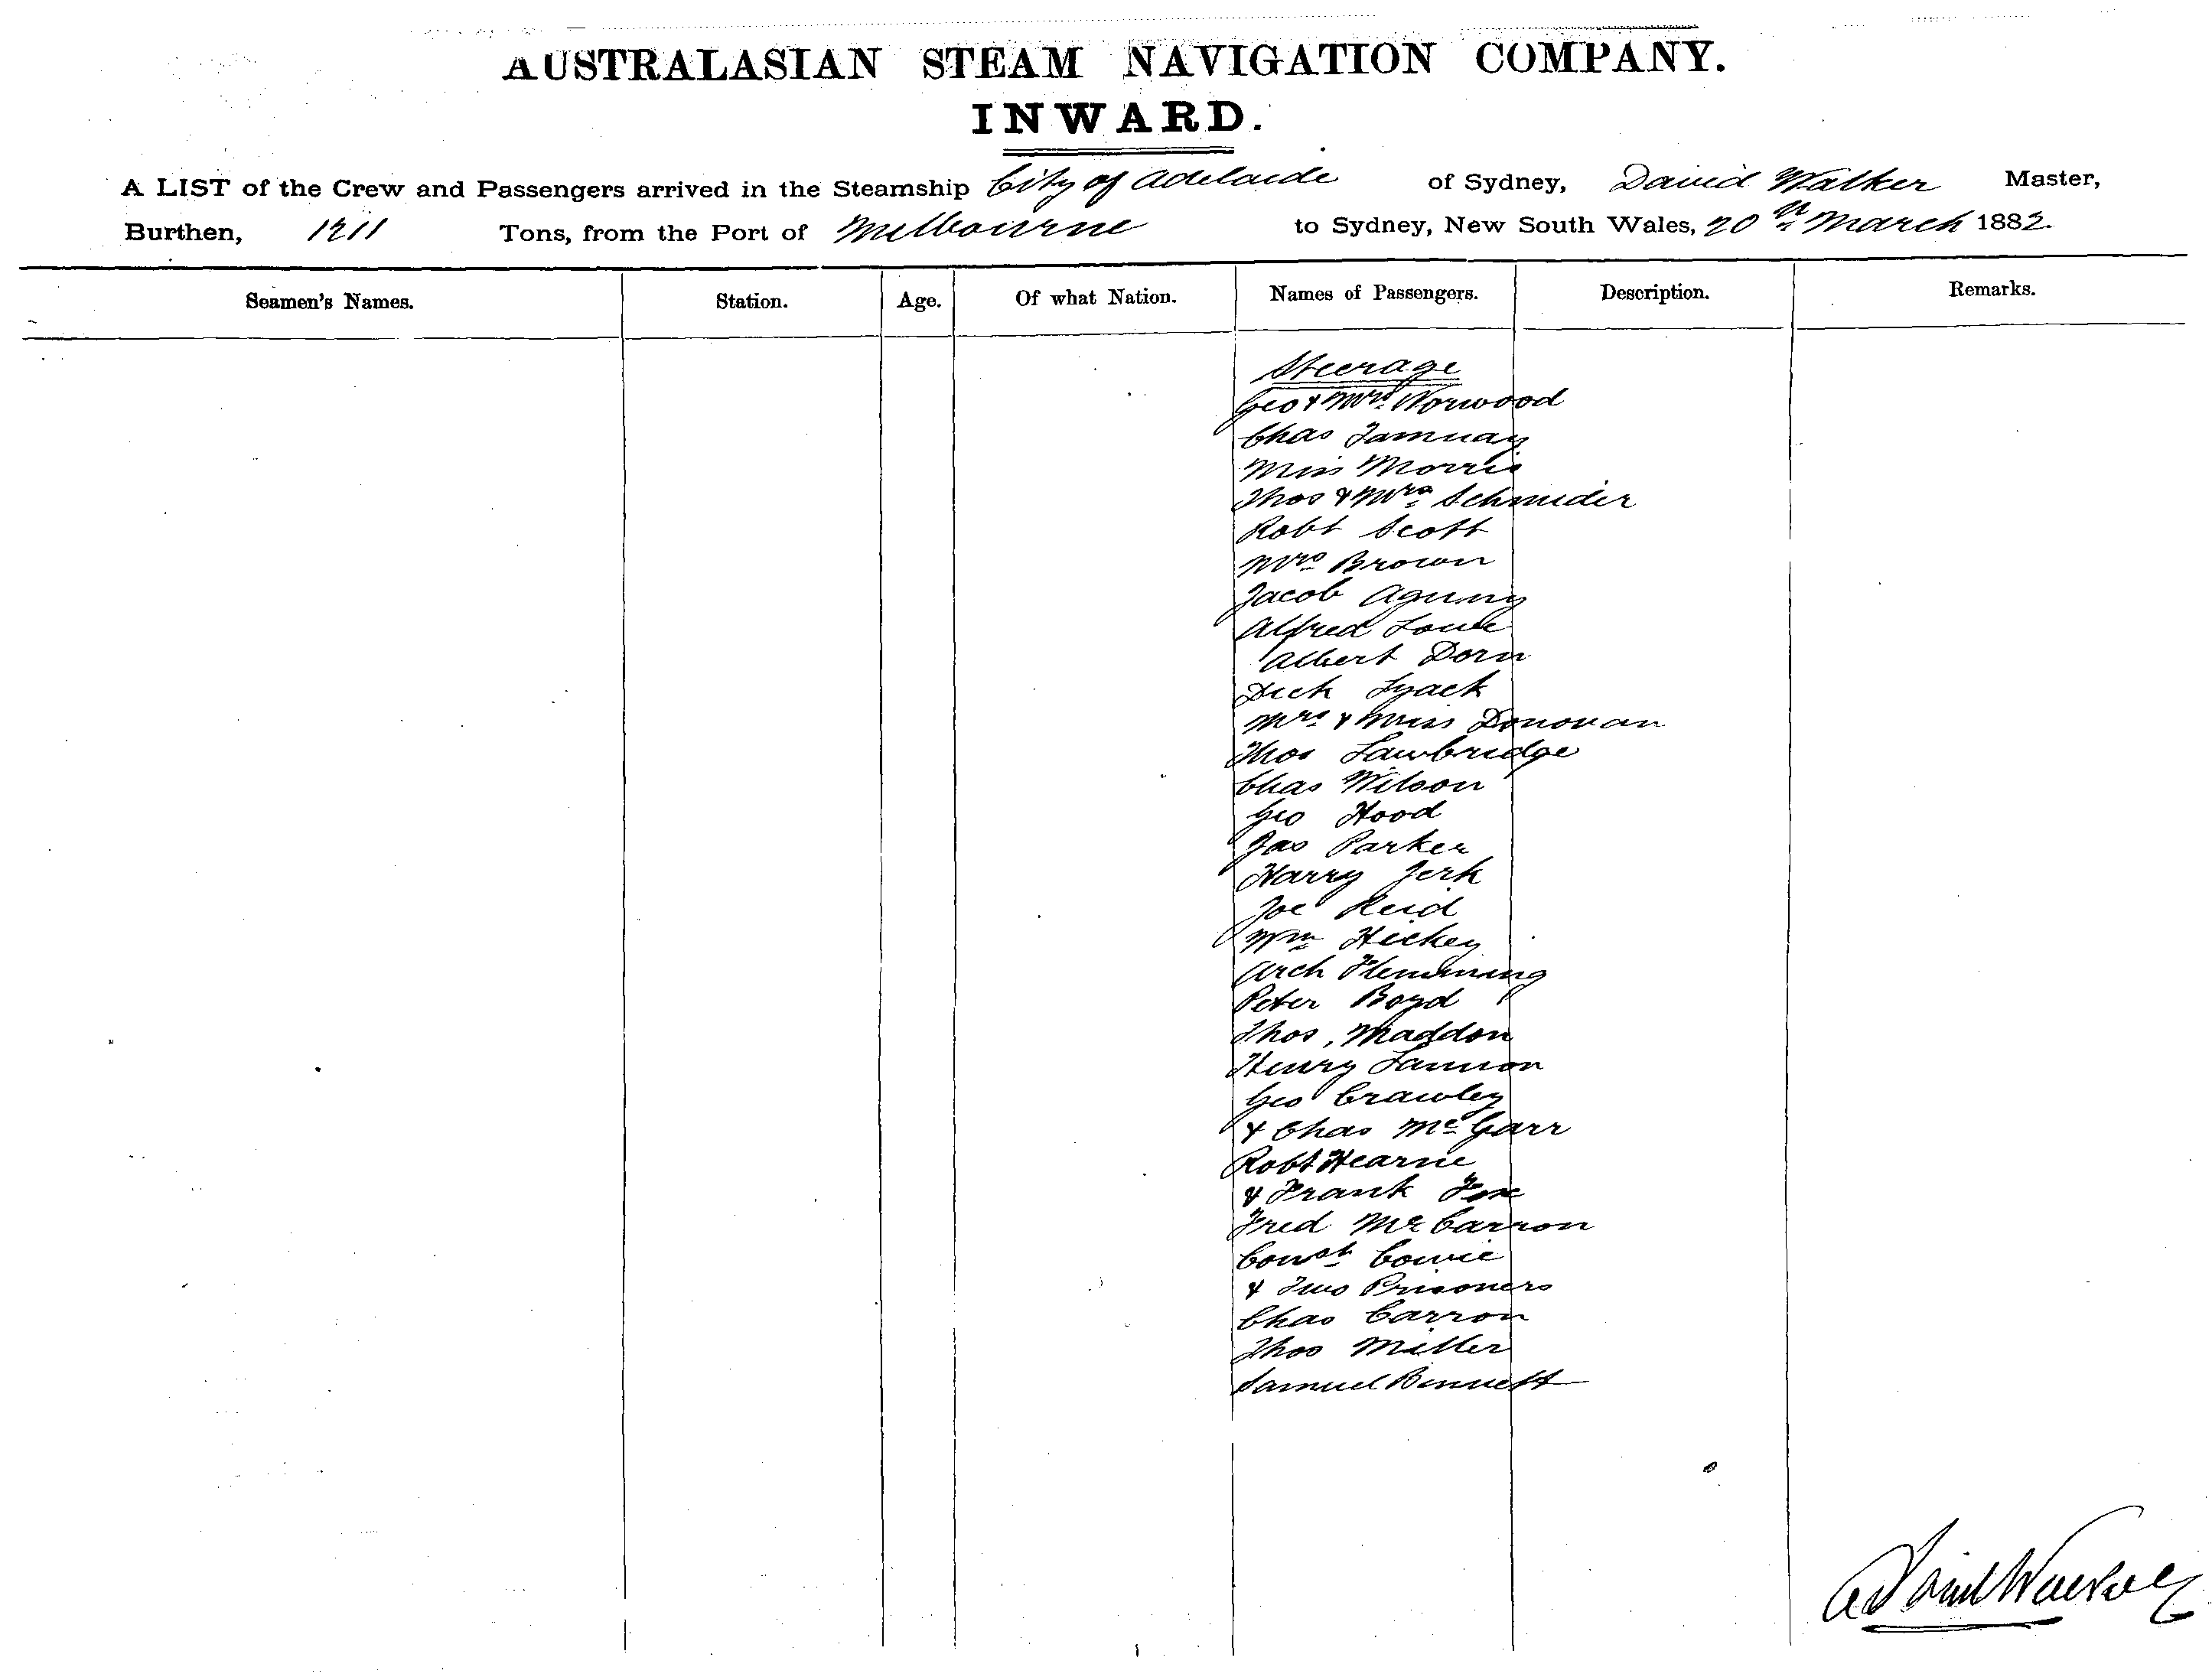 AUSTRALASIAN STEAM NAVIGATION COMPANY.
INWARD.
A LIST of the Crew and Passengers arrived in the Steamship City of Adelaide of Sydney, David Walker Master,
Burthen, 1211 Tons, from the Port of Melbourne to Sydney, New South Wales, 20th March 1882.
Seamen's Names. Station. Age. Of what Nation. Names of Passengers. Description. Remarks.
Steerage
Geo & Mrs Norwood
Chas
Miss Morris
Thos & Mrs Schmider
Robt Scott
Mrs Brown
Jacob
Alfred Lowe
Albert Dorn
Dick Lyack
Mrs & Miss Donovan
Thos Lawbridge
Chas Wilson
Geo Hood
Jas Parker
Harry Jerk
Joe Reid
Wm Hickey
Arch Flemming
Peter Boyd
Thos, Maddon
Henry Lannon
Geo Crawley
& Chas McGarr
Robt Hearne
& Frank Fox
Fred McCarron
Const Cowie
& Two Prisoners
Chas Carron
Thos Miller
Samuel Bennett
David Walker